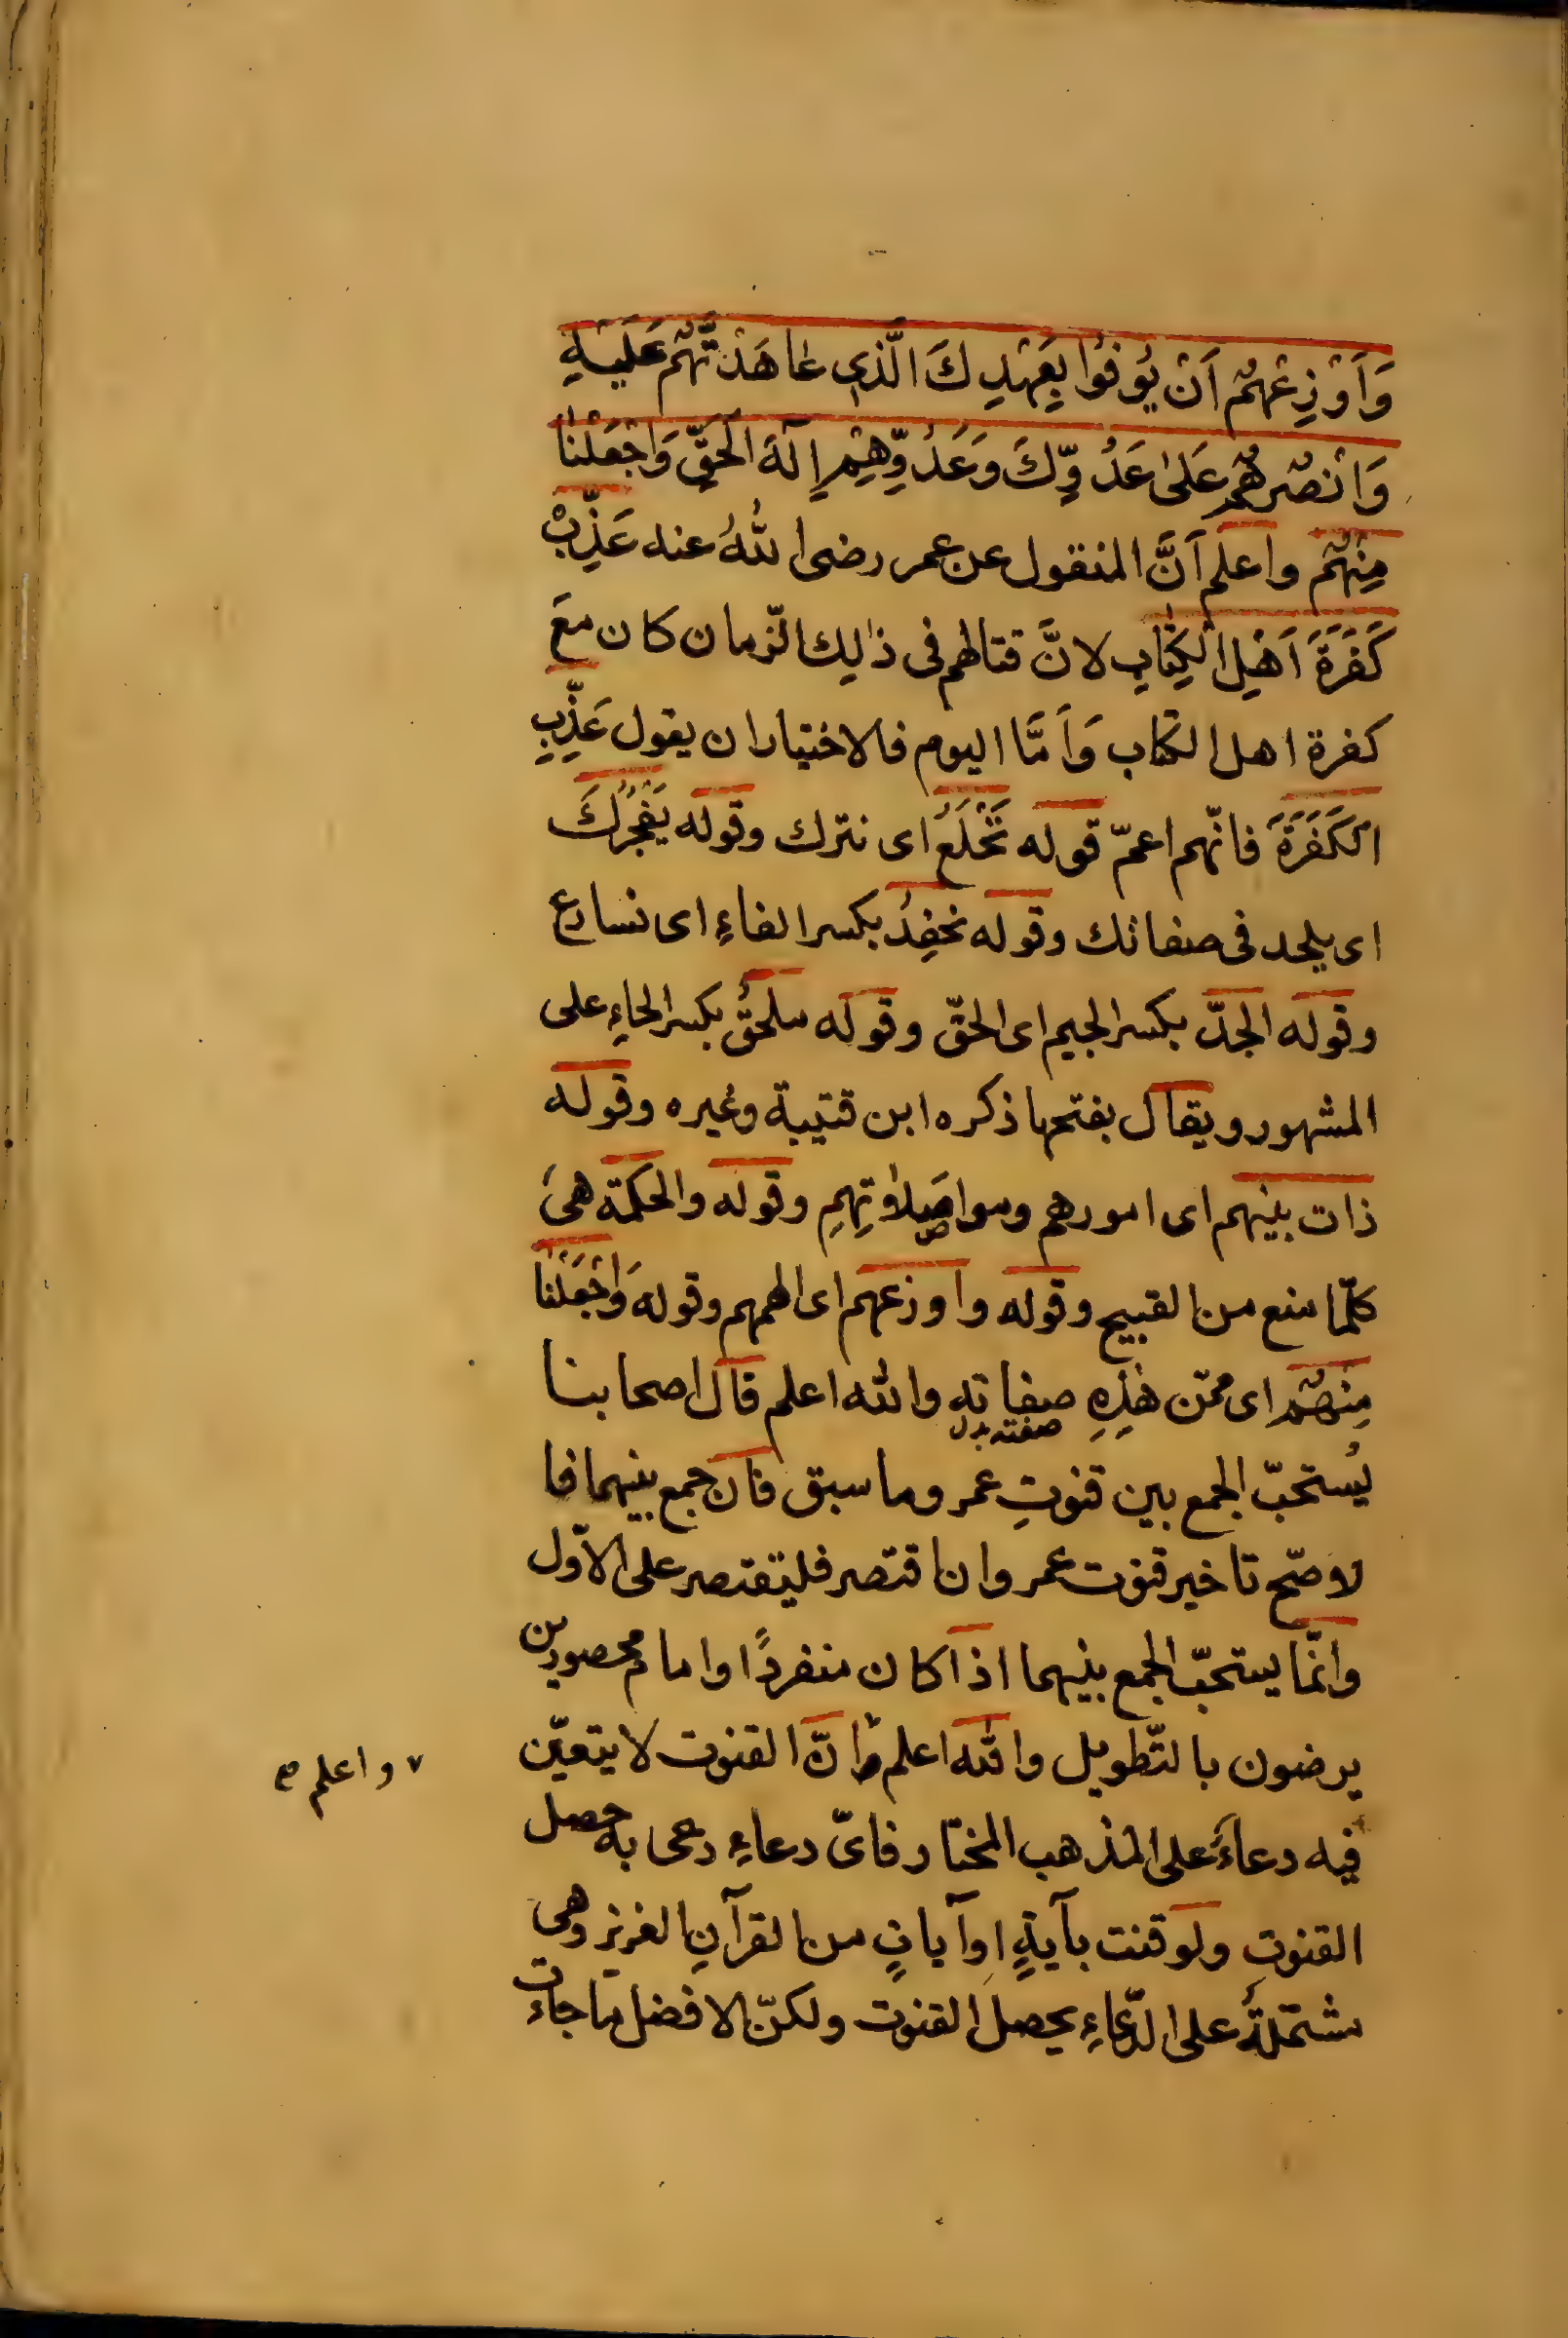 وَاَوْزِعْهُمْ اَنْ يُوفُوا بِعَهْدِكَ الَّذِي عَاهَدْتَّهُمْ عَلَيْهِ
وَانْصُرْهُمْ عَلىٰ عَدُوِّكَ وَعَدُوِّهِمْ اِلٰهَ الْحَقِّ وَاجْعَلْنَا
مِنْهُمْ واعلم اَنَّ المنقول عن عمر رضى اللهُ عنه عَذِّبْ
كَفَرَةَ اَهْلِ الْكِتَابِ لانَّ قتالهم فى ذٰلِك الزّمان كان معَ
كفرة اهل الكتاب وَاَمَّا اليوم فالاختيار ان يقول عَذِّبِ
الْكَفَرَةَ فانّهم اعمّ قوله نَخْلَعُ اى نترك وقوله يَفْجُرُكَ
اى يلحد فى صفاتك وقوله نحفِدُ بكسر الفاءِ اى نسارع
وقوله الجدّ بكسر الجيم اى الحقّ وقوله ملحقٌ بكسر الحاءِ على
المشهور ويقال بفتحها ذكره ابن قتيبة وغيره وقوله
ذات بينهم اى امورهم ومواصَلاٰتِهِم وقوله والحكمة هىَ
كلّما منع من القبيح وقوله واوزعهم اى الهمهم وقوله وَاجْعَلْنَا
مِنْهُمْ اى ممّن هٰذِهِ صفاته والله اعلم قال اصحابنا
صفته بدل
يُستحبّ الجمع بين قنوتِ عمر وما سبق فان جمع بينهما فا
لاوصّح تاخير قنوت عمر وان اقتصر فليتقتصر على الاوّل
وانّما يستحبّ الجمع بينهما اذا كان منفردًا او امام محصورين
يرضون بالتّطويل والله اعلم انّ القنوت لا يتعيّن
٧ واعلم صح
فيه دعاءٌ على المذهب المختار فاىّ دعاءِ دعى به حصل
القنوتِ ولو قنت بآيةٍ اوآياتٍ من القرآنِ العزيز وهى
مشتملةٌ على الدّعاءِ يحصل القنوت ولكنّ الافضل ما جاءت